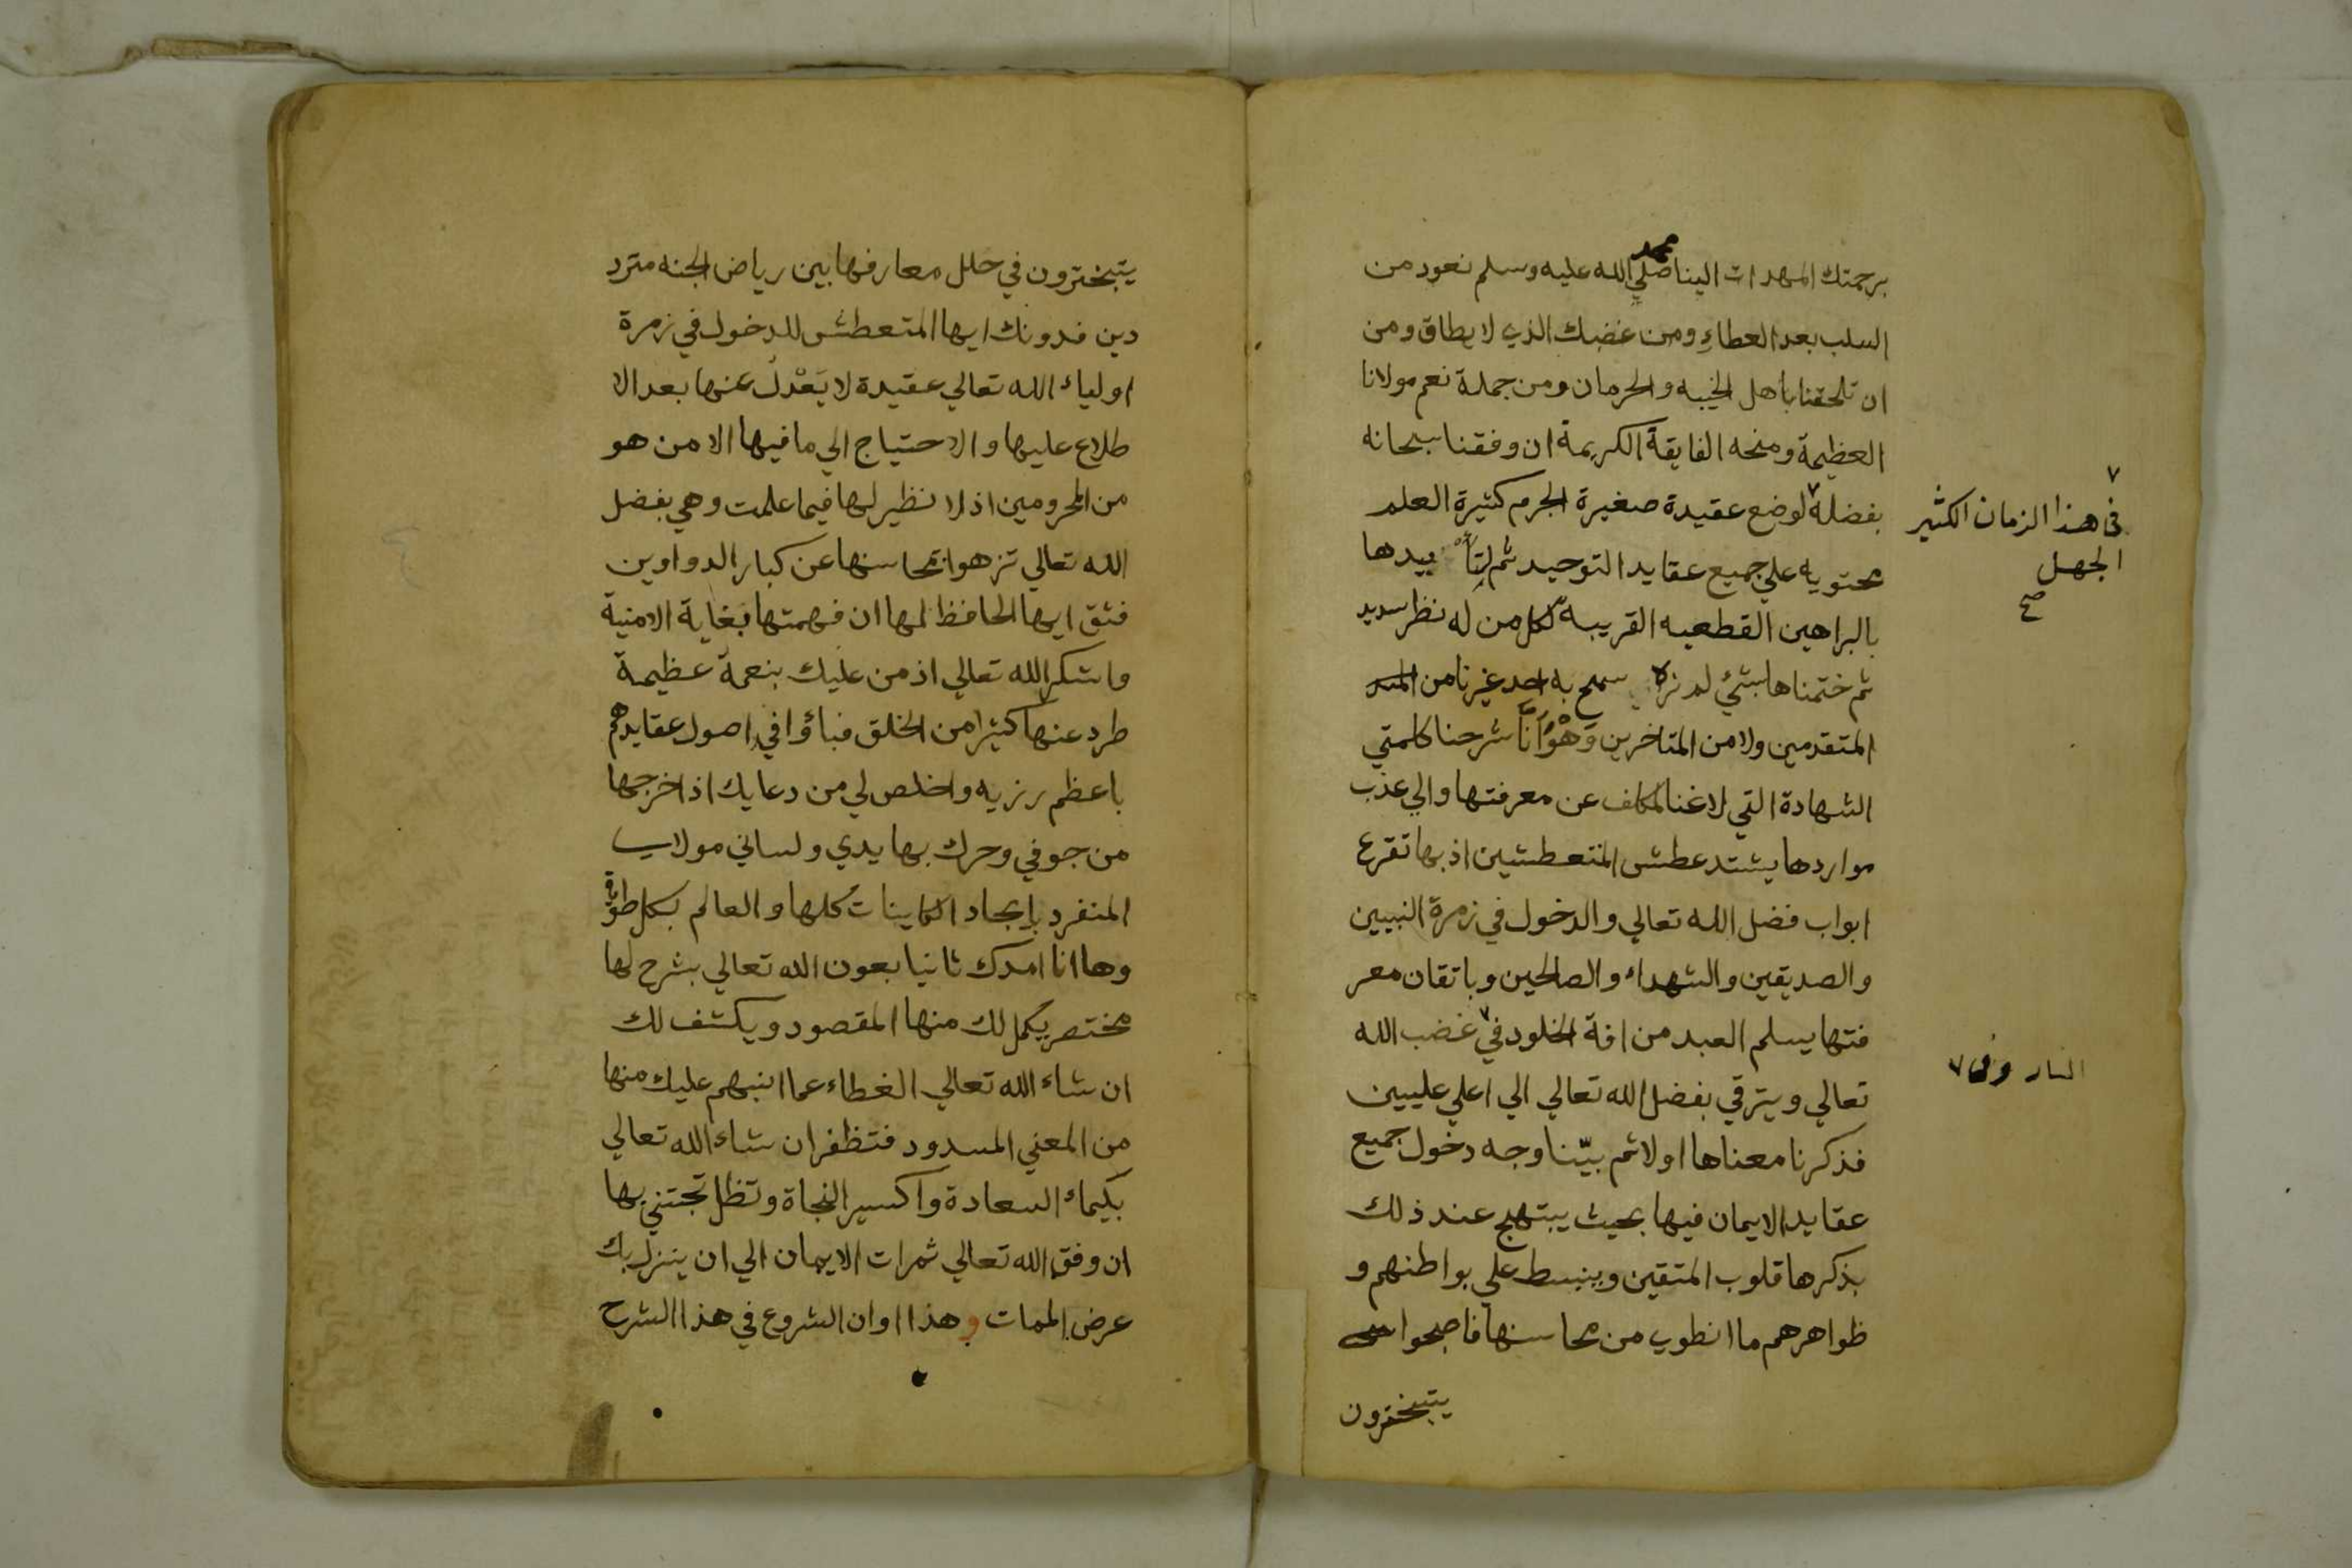 برحمتك المهداة الينا محمد صلي الله عليه وسلم نعود من
السلب بعد العطاءِ ومن غضبك الذي لا يطاق ومن
ان تلحقنا باهل الخيبه والحرمان ومن جملة نعم مولانا
العظيمة ومنحه الفايقة الكريمة ان وفقنا سبحانه
بفضله لوضع عقيدة صغيرة الجرم كثيرة العلم
في هذا الزمان الكثير
الجهل
صح
محتويه علي جميع عقايد التوحيد ثم لتأييدها
بالبراهين القطعيه القريبه لكل من له نظر سديد
ثم ختمناها بشئ لم نره سمح به احد غيرنا من
المتقدمين ولا من المتاخرين وَهُوَ اَنَّا شرحنا كلمتي
الشهادة التي لاغنا لمكلف عن معرفتها والي عذب
مواردها يشتد عطش المتعطشين اذ بها تقرع
ابواب فضل الله تعالي والدخول في زمرة النبيين
والصديقين والشهداء والصالحين وباتقان معر
فتها يسلم العبد من افة الخلود في غضب الله
النار وفي
تعالي ويترقي بفضل الله تعالي الي اعلي عليين
فذكرنا معناها اولا ثم بيّنا وجه دخول جميع
عقايد الايمان فيها بحيث يبتهج عند ذلك
بذكرها قلوب المتقين وينبسط علي بواطنهم و
ظواهرهم ما انطوي من محاسنها فاصبحوا
يتبخترون
يتبخترون في حلل معارفها بين رياض الجنه مترد
دين فدونك ايها المتعطش للدخول في زمرة
اولياء الله تعالي عقيدة لا يَعْدِل عنها بعد الا
طلاع عليها والاحتياج الي ما فيها الا من هو
من المحرومين اذ لا نظير لها فيما علمت وهي بفضل
الله تعالي تزهوا بمحاسنها عن كبار الدواوين
فثق ايها الحافظ لها ان فهمتها بغاية الامنية
واشكر الله تعالي اذ من عليك بنعمة عظيمة
طرد عنها كثيرا من الخلق فباؤا في اصول عقايدهم
باعظم رزيه واخلص لي من دعايك اذ اخرجها
من جوفي وحرك بها يدي ولساني مولاي
المنفرد بايجاد الكاينات كلها والعالم بكل طوية
وها انا امدك ثانيا بعون الله تعالي بشرح لها
مختصر يكمل لك منها المقصود ويكشف لك
ان شاء الله تعالي الغطاء عما انبهم عليك منها
من المعني المسدود فتظفر ان شاء الله تعالي
بكيماء السعادة واكسير النجاة وتظل تجتني بها
ان وفق الله تعالي ثمرات الايمان الي ان ينزل بك
عرض الممات وهذا اوان الشروع في هذا الشرح